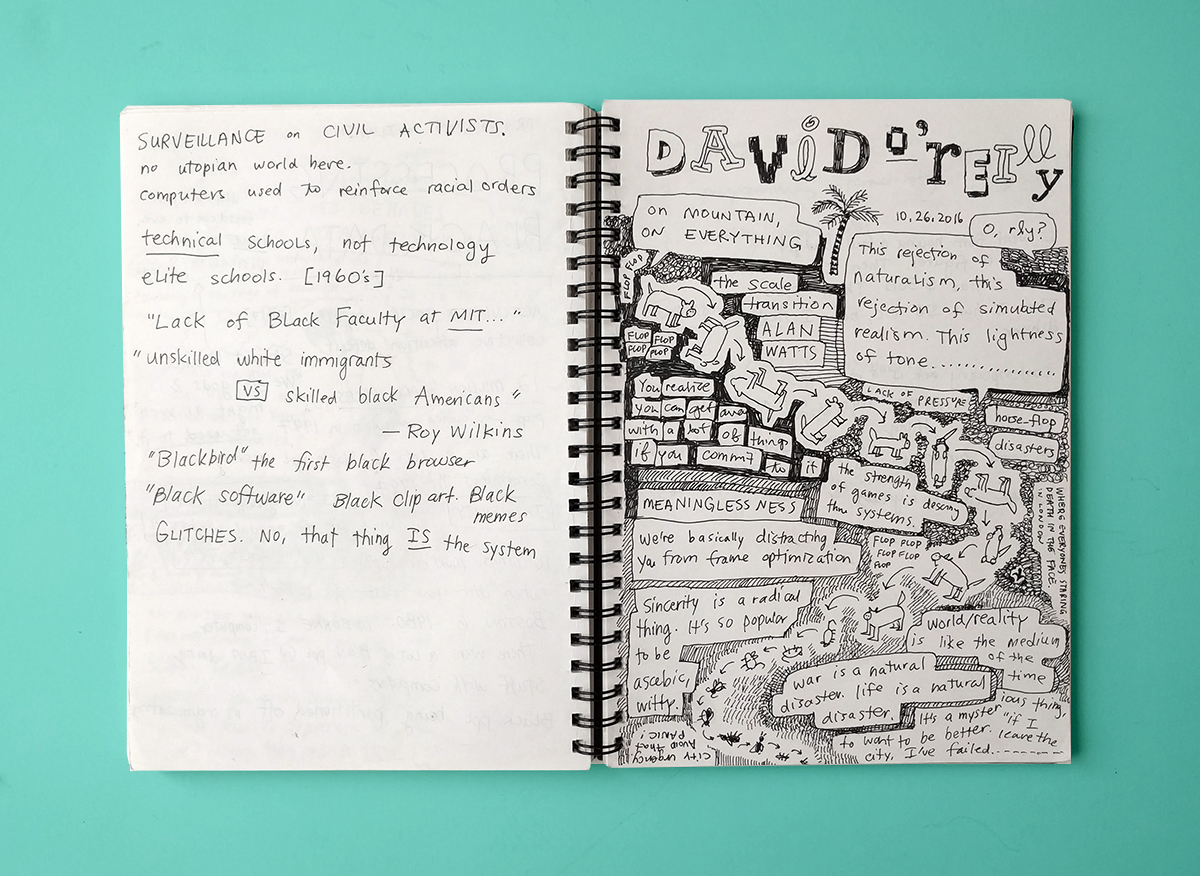 SURVEILLANCE on CIVIL ACTIVISTS.
no utopian world here.
computers used to reinforce racial orders
technical schools, not technology
elite schools. [1960's]
"Lack of Black Faculty at MIT... "
"unskilled white immigrants
VS skilled black Americans"
— Roy Wilkins
"Blackbird" the first black browser
"Black software" Black clip art. Black
memes
GLITCHES. NO, that thing IS the system
DAViD O'REIlly
10.26.2016
ON MOUNTAIN,
ON EVERYTHING
O, rly?
This rejection of
naturalism, this
rejection of simulated
realism. This lightness
of tone................
FLOP FLOP
the scale
transition
ALAN
WATTS
FLOP FLOP
FLOP FLOP
You realize
you can get away
with a lot of things
if you commit to it
LACK OF PRESSURE
horse-flop
disasters
the strength
of games is descry
the systems.
MEANINGLESSNESS
We're basically distracting
you from frame optimization
FLOP FLOP
FLOP FLOP
FLOP
WHERE EVERYONE'S STARING
DEATH IN THE FACE.
Sincerity is a radical
thing. It's so popular
to be
ascebic,
witty.
world/reality
is like the medium
of the
time
war is a natural
disaster. life is a natural
disaster.
It's a mysterious thing,
to want to be better. "if I leave the
city, I've failed.
CITY URGENCY
AVOID THAT
PANIC.